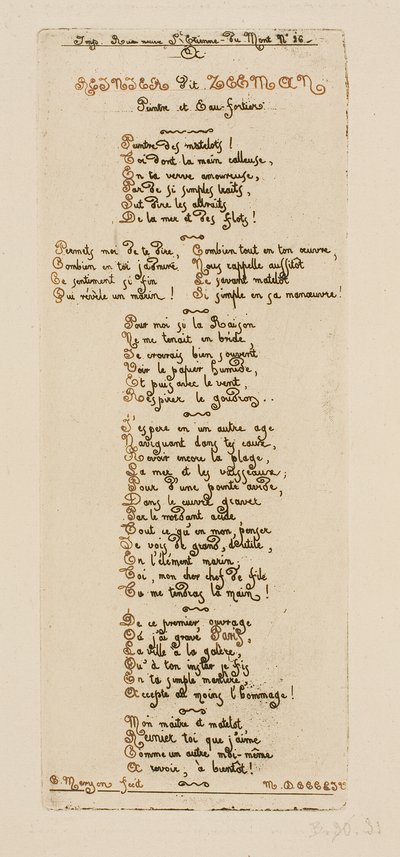 Imp. Rue neuve St Etienne-du Mont No 26.
A
REINIER dit ZEEMAN
Peintre et Eau-fortier.
Peintre des matelots !
Toi dont la main calleuse,
En ta verve amoureuse,
Par de si simples traits,
Sut dire les attraits
De la mer et des flots !
Permets moi de te dire,
Combien en toi j'admire
Ce sentiment si fin
Qui révèle un marin !
Combien tout en ton œuvre,
Nous rappelle aussitôt
Le savant matelot
Si simple en sa manœuvre !
Pour moi si la Raison
Ne me tenait en bride,
Je croirais bien souvent,
Voir le papier humide,
Et puis avec le vent,
Respirer le goudron..
J'espere en un autre age
Naviguant dans tes eaux,
Revoir encore la plage,
La mer et les vaisseaux;
Pour d'une pointe avide,
Dans le cuivre graver
Par le mordant acide
Tout ce qu'en mon penser
Je vois de grand, d'utile,
En l'élément marin,
Toi, mon cher chef de file
Tu me tendras la main !
De ce premier ouvrage
Où j'ai gravé Paris,
La ville à la galère,
Qu'à ton instar je fis
En ta simple manière,
Accepte au moins l'hommage !
Mon maître et matelot
REINIER toi que j'aime
Comme un autre moi-même
A revoir, à bientôt !
C. Meryon fecit
M. DCCCLIV